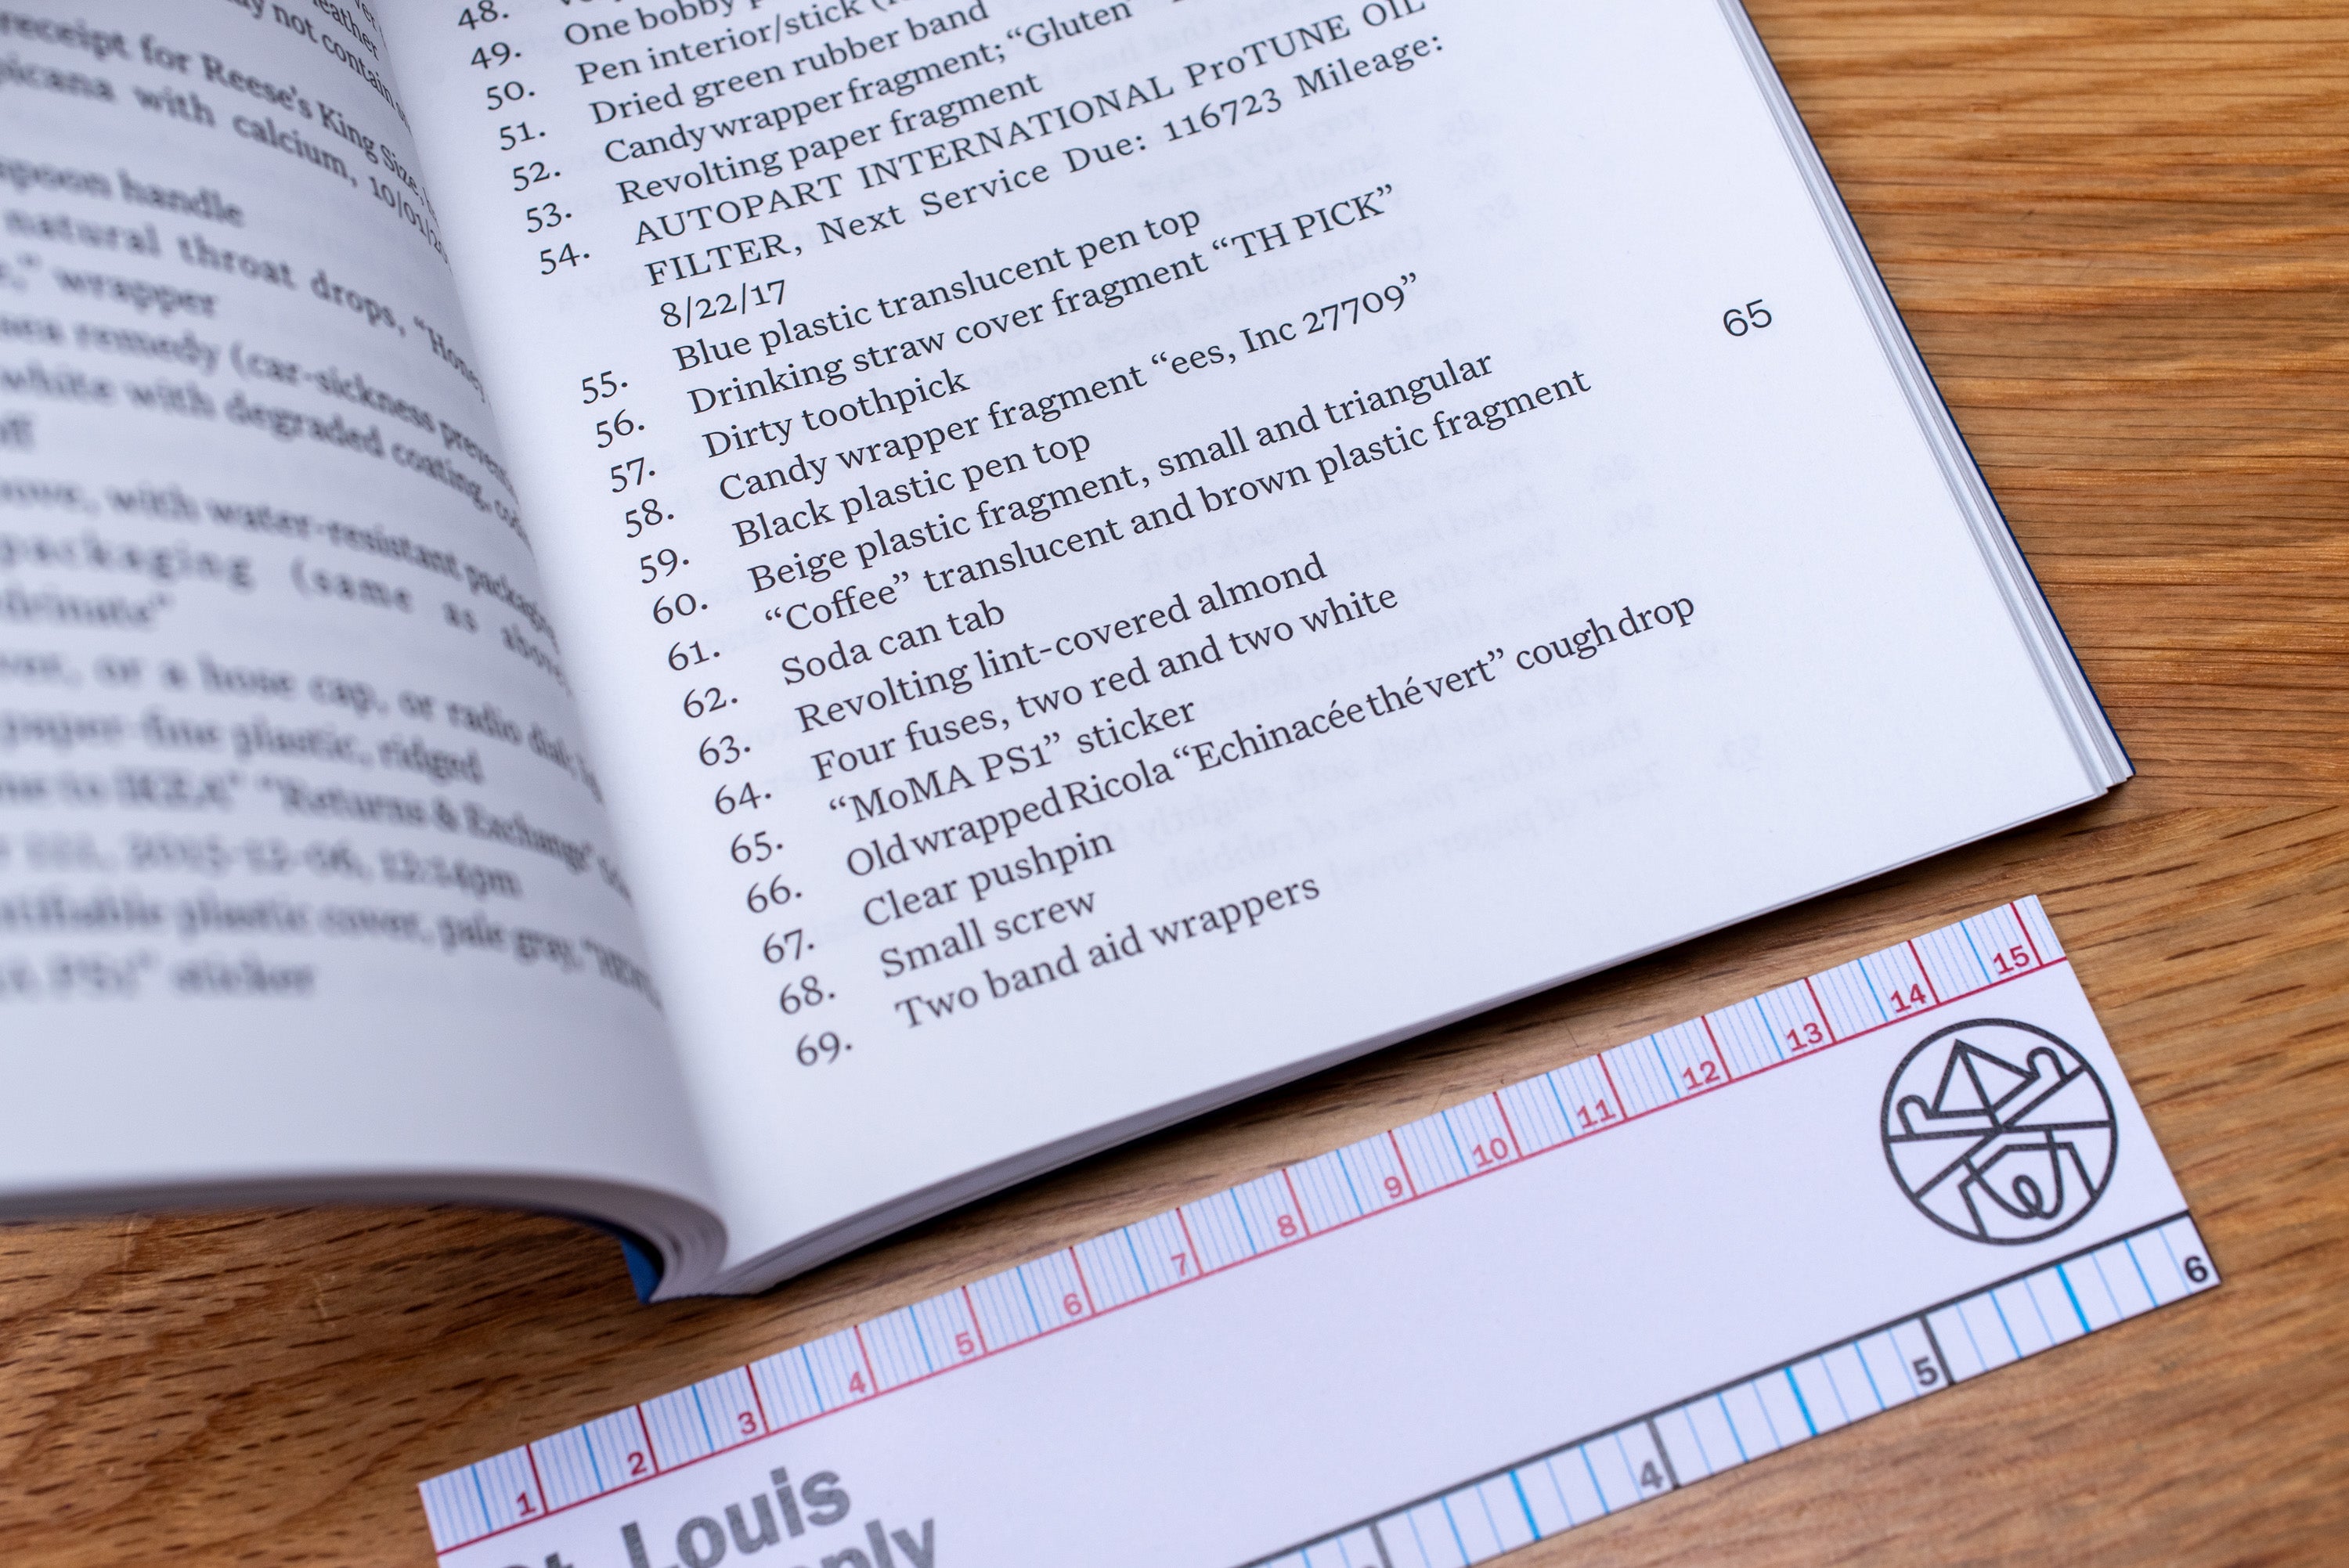 not contain
receipt for Reese's King Size,
with calcium, 10/01/
spoon handle
natural throat drops, "Honey
wrapper
remedy (car-sickness
white with degraded coating,
with water-resistant
packaging (same as above
or a hose cap, or radio dial,
paper-fine plastic, ridged
to IKEA" "Returns & Exchange"
2015-12-06, 12:14pm
plastic cover, pale gray,
PS1" sticker
48.
49. One bobby
50. Pen interior/stick
51. Dried green rubber band
52. Candy wrapper fragment; "Gluten
53. Revolting paper fragment
54. AUTOPART INTERNATIONAL ProTUNE OIL
FILTER, Next Service Due: 116723 Mileage:
8/22/17
55. Blue plastic translucent pen top
56. Drinking straw cover fragment "TH PICK"
57. Dirty toothpick
58. Candy wrapper fragment "ees, Inc 27709"
59. Black plastic pen top
60. Beige plastic fragment, small and triangular
61. "Coffee" translucent and brown plastic fragment
62. Soda can tab
63. Revolting lint-covered almond
64. Four fuses, two red and two white
65. "MoMA PS1" sticker
66. Old wrapped Ricola "Echinacée thé vert" cough drop
67. Clear pushpin
68. Small screw
69. Two band aid wrappers
65
1 2 3 4 5 6 7 8 9 10 11 12 13 14 15
St. Louis
4 5 6